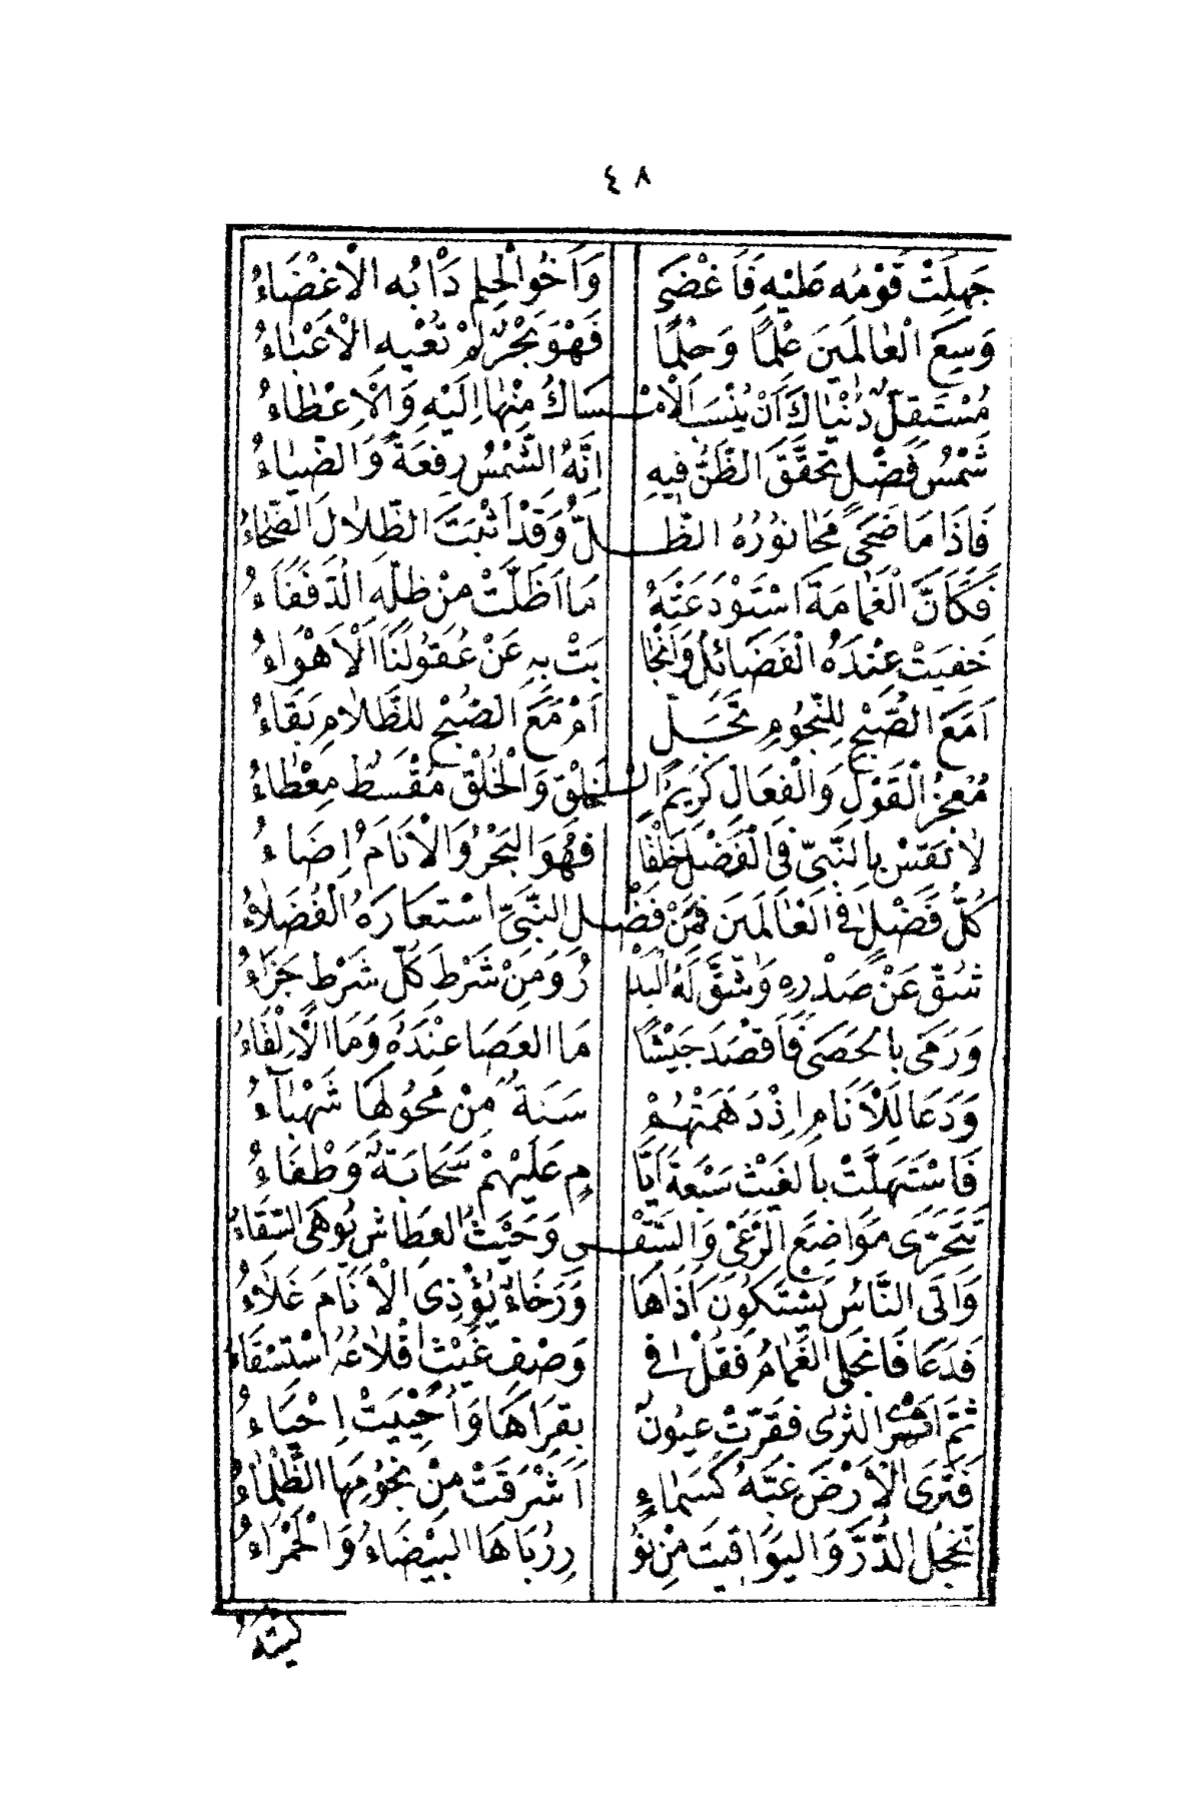 ٤٨
جَهِلَتْ قَوْمُه عَلَيْهِ فَاَغْضَى وَاَخُو الْحِلْمِ دَاْبُه الْاِغْضَاءُ
وَسِعَ الْعَالَمِينَ عِلْمًا وَحِلْمًا فَهْوَ بَحْرٌ لَمْ تُعْيِهِ الْاَعْبَاءُ
مُسْتَقِلٌّ دُنْيَاكَ اَنْ يُنْسَبَ الْاِمْـسَاكُ مِنْهَا اِلَيْهِ وَالْاِعْطَاءُ
شَمْسُ فَضْلٍ تَحَقَّقَ الظَّنُّ فِيهِ اِنَّهُ الشَّمْسُ رِفْعَةً وَالضِّيَاءُ
فَاِذَا مَا ضَحَى مَحَا نُورُهُ الظِّـلَّ وَقَدْ اَثْبَتَ الظِّلَالَ الضَّحَاءُ
فَكَاَنَّ الْغَمَامَةَ اسْتَوْدَعَتْهُ مَا اَظَلَّتْ مِنْ ظِلِّهِ الدَّفَفَاءُ
خَفِيَتْ عِنْدَهُ الْفَضَائِلُ وَانْجَا بَتْ بِهِ عَنْ عُقُولِنَا الْاَهْوَاءُ
اَمَعَ الصُّبْحِ لِلنُّجُومِ تَجَلٍّ اَمْ مَعَ الصُّبْحِ لِلظَّلَامِ بَقَاءُ
مُعْجِزُ الْقَوْلِ وَالْفِعَالِ كَرِيمُ الْـخَلْقِ وَالْخُلْقِ مُقْسِطٌ مِعْطَاءُ
لَا تَقِسْ بِالنَّبِيِّ فِي الْفَضْلِ خَلْقًا فَهُوَ الْبَحْرُ وَالْاَنَامُ اِضَاءُ
كُلُّ فَضْلٍ فِي الْعَالَمِينَ فَمِنْ فَضْـلِ النَّبِيِّ اسْتَعَارَهُ الْفُضَلَاءُ
شُقَّ عَنْ صَدْرِهِ وَشُقَّ لَهُ الْبَدْ رُ وَمِنْ شَرْطِ كُلِّ شَرْطٍ جَزَاءُ
وَرَمَى بِالْحَصَى فَاَقْصَدَ جَيْشًا مَا الْعَصَا عِنْدَهُ وَمَا الْاِلْقَاءُ
وَدَعَا لِلْاَنَامِ اِذْ دَهَمَتْهُمْ سَنَةٌ مِنْ مُحُولِهَا شَهْبَاءُ
فَاسْتَهَلَّتْ بِالْغَيْثِ سَبْعَةَ اَيَّا مٍ عَلَيْهِمْ سَحَابَةٌ وَطْفَاءُ
تَتَحَرَّى مَوَاضِعَ الرَّعْيِ وَالسَّقْـيِ وَحَيْثُ الْعِطَاشُ تُوهَى السِّقَاءُ
وَاَتَى النَّاسُ يَشْتَكُونَ اَذَاهَا وَرَخَاءٌ يُؤْذِي الْاَنَامَ غَلَاءُ
فَدَعَا فَانْجَلَى الْغَمَامُ فَقُلْ فِي وَصْفِ غَيْثٍ اِقْلَاعُهُ اسْتِسْقَاءُ
ثُمَّ اَثْرَى الثَّرَى فَقَرَّتْ عُيُونٌ بِقُرَاهَا وَاُحْيِيَتْ اِحْيَاءُ
فَتَرَى الْاَرْضَ غِبَّهُ كَسَمَاءٍ اَشْرَقَتْ مِنْ نُجُومِهَا الظَّلْمَاءُ
تُخْجِلُ الدُّرَّ وَالْيَوَاقِيتَ مِنْ نَوْ رِ رُبَاهَا الْبَيْضَاءُ وَالْحَمْرَاءُ
لَيْتَهُ